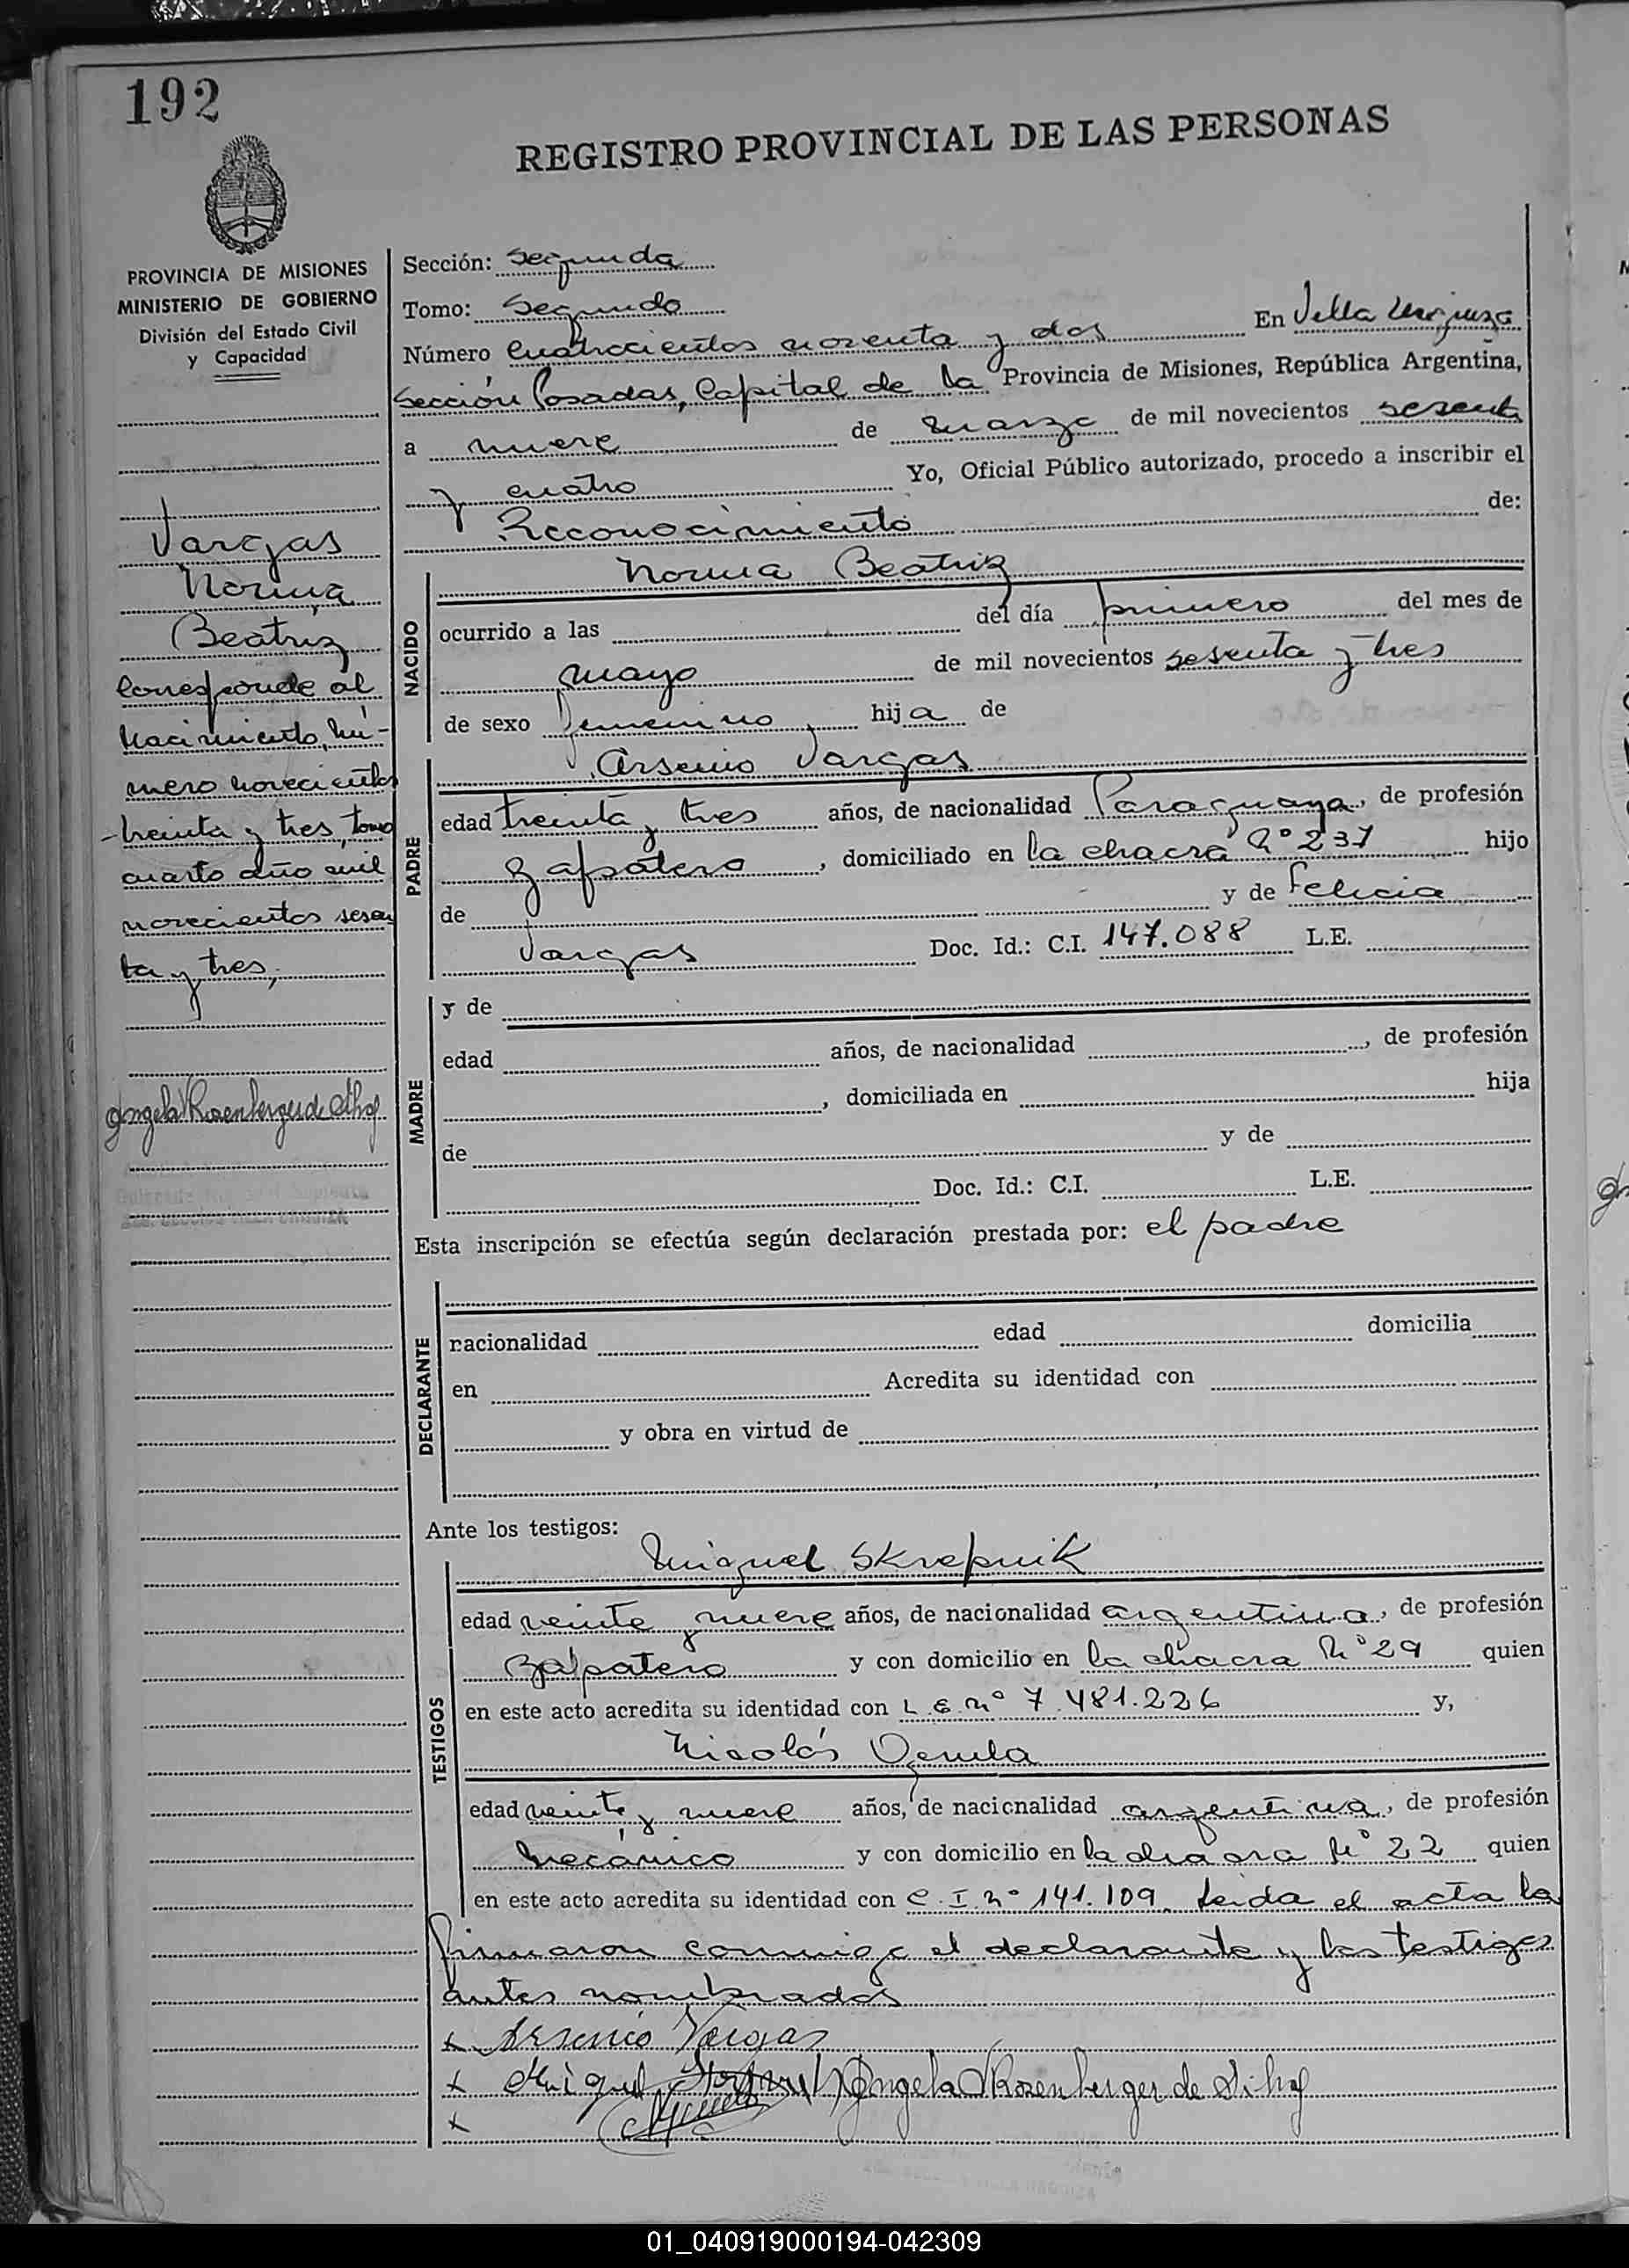 192
REGISTRO PROVINCIAL DE LAS PERSONAS
PROVINCIA DE MISIONES
MINISTERIO DE GOBIERNO
División del Estado Civil
y Capacidad
Vargas
Norma
Beatriz
Corresponde al
Nacimiento, nú-
mero novecientos
treinta y tres, tomo
cuarto año mil
novecientos sesen
ta y tres,
Angela Rosenberger de
Sección: Segunda
Tomo: Segundo
Número Cuatrocientos noventa y dos En Villa Urquiza
Sección Posadas, Capital de la Provincia de Misiones, República Argentina,
a nueve de marzo de mil novecientos sesenta
y cuatro Yo, Oficial Público autorizado, procedo a inscribir el
Reconocimiento de:
NACIDO
Norma Beatriz
ocurrido a las del día primero del mes de
mayo de mil novecientos sesenta y tres
de sexo femenino, hija de
PADRE
Arsenio Vargas
edad treinta y tres años, de nacionalidad Paraguaya, de profesión
Zapatero, domiciliado en la chacra Nº 237 hijo
de y de Felicia
Vargas Doc. Id.: C.I. 147.088 L.E.
MADRE
y de
edad años, de nacionalidad , de profesión
, domiciliada en hija
de y de
Doc. Id.: C.I. L.E.
Esta inscripción se efectúa según declaración prestada por: el padre
DECLARANTE
nacionalidad edad domicilia
en Acredita su identidad con
y obra en virtud de
Ante los testigos:
TESTIGOS
Miguel Skrepnik
edad veinte y nueve años, de nacionalidad argentina, de profesión
Zapatero y con domicilio en la chacra Nº 29 quien
en este acto acredita su identidad con L.E. nº 7.481.226 y,
Nicolás
edad veinte y nueve años, de nacionalidad argentina, de profesión
Mecánico y con domicilio en la chacra Nº 22 quien
en este acto acredita su identidad con C.I. nº 141.109. Leida el acta la
firmaron conmigo el declarante y los testigos
antes nombrados
x Arsenio Vargas
x Miguel Angela Rosenberger de
x
01_040919000194-042309